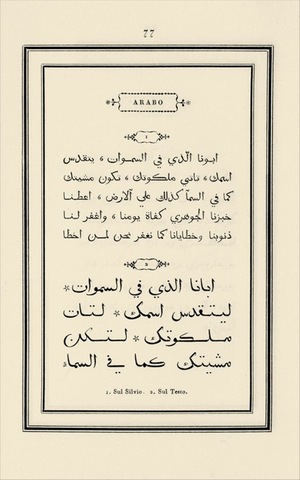 77
ARABO
1
ابونا الّذي في السمـوات ، يتقدس
اسمك ، تاتي ملكوتك ، تكون مشيتك
كما في السمآ كذلك علي الارض ، اعطنا
خبزنا الجوهري كفاة يومنا ، واغفر لنا
ذنوبنا وخطايانا كما نغفر نحن لمـن اخطا
2
ابانا الذي في السموات *
ليتقدس اسمك * لتات
ملكوتك * لتكن
مشيتك كما في السماء
1. Sul Silvio. 2. Sul Testo.